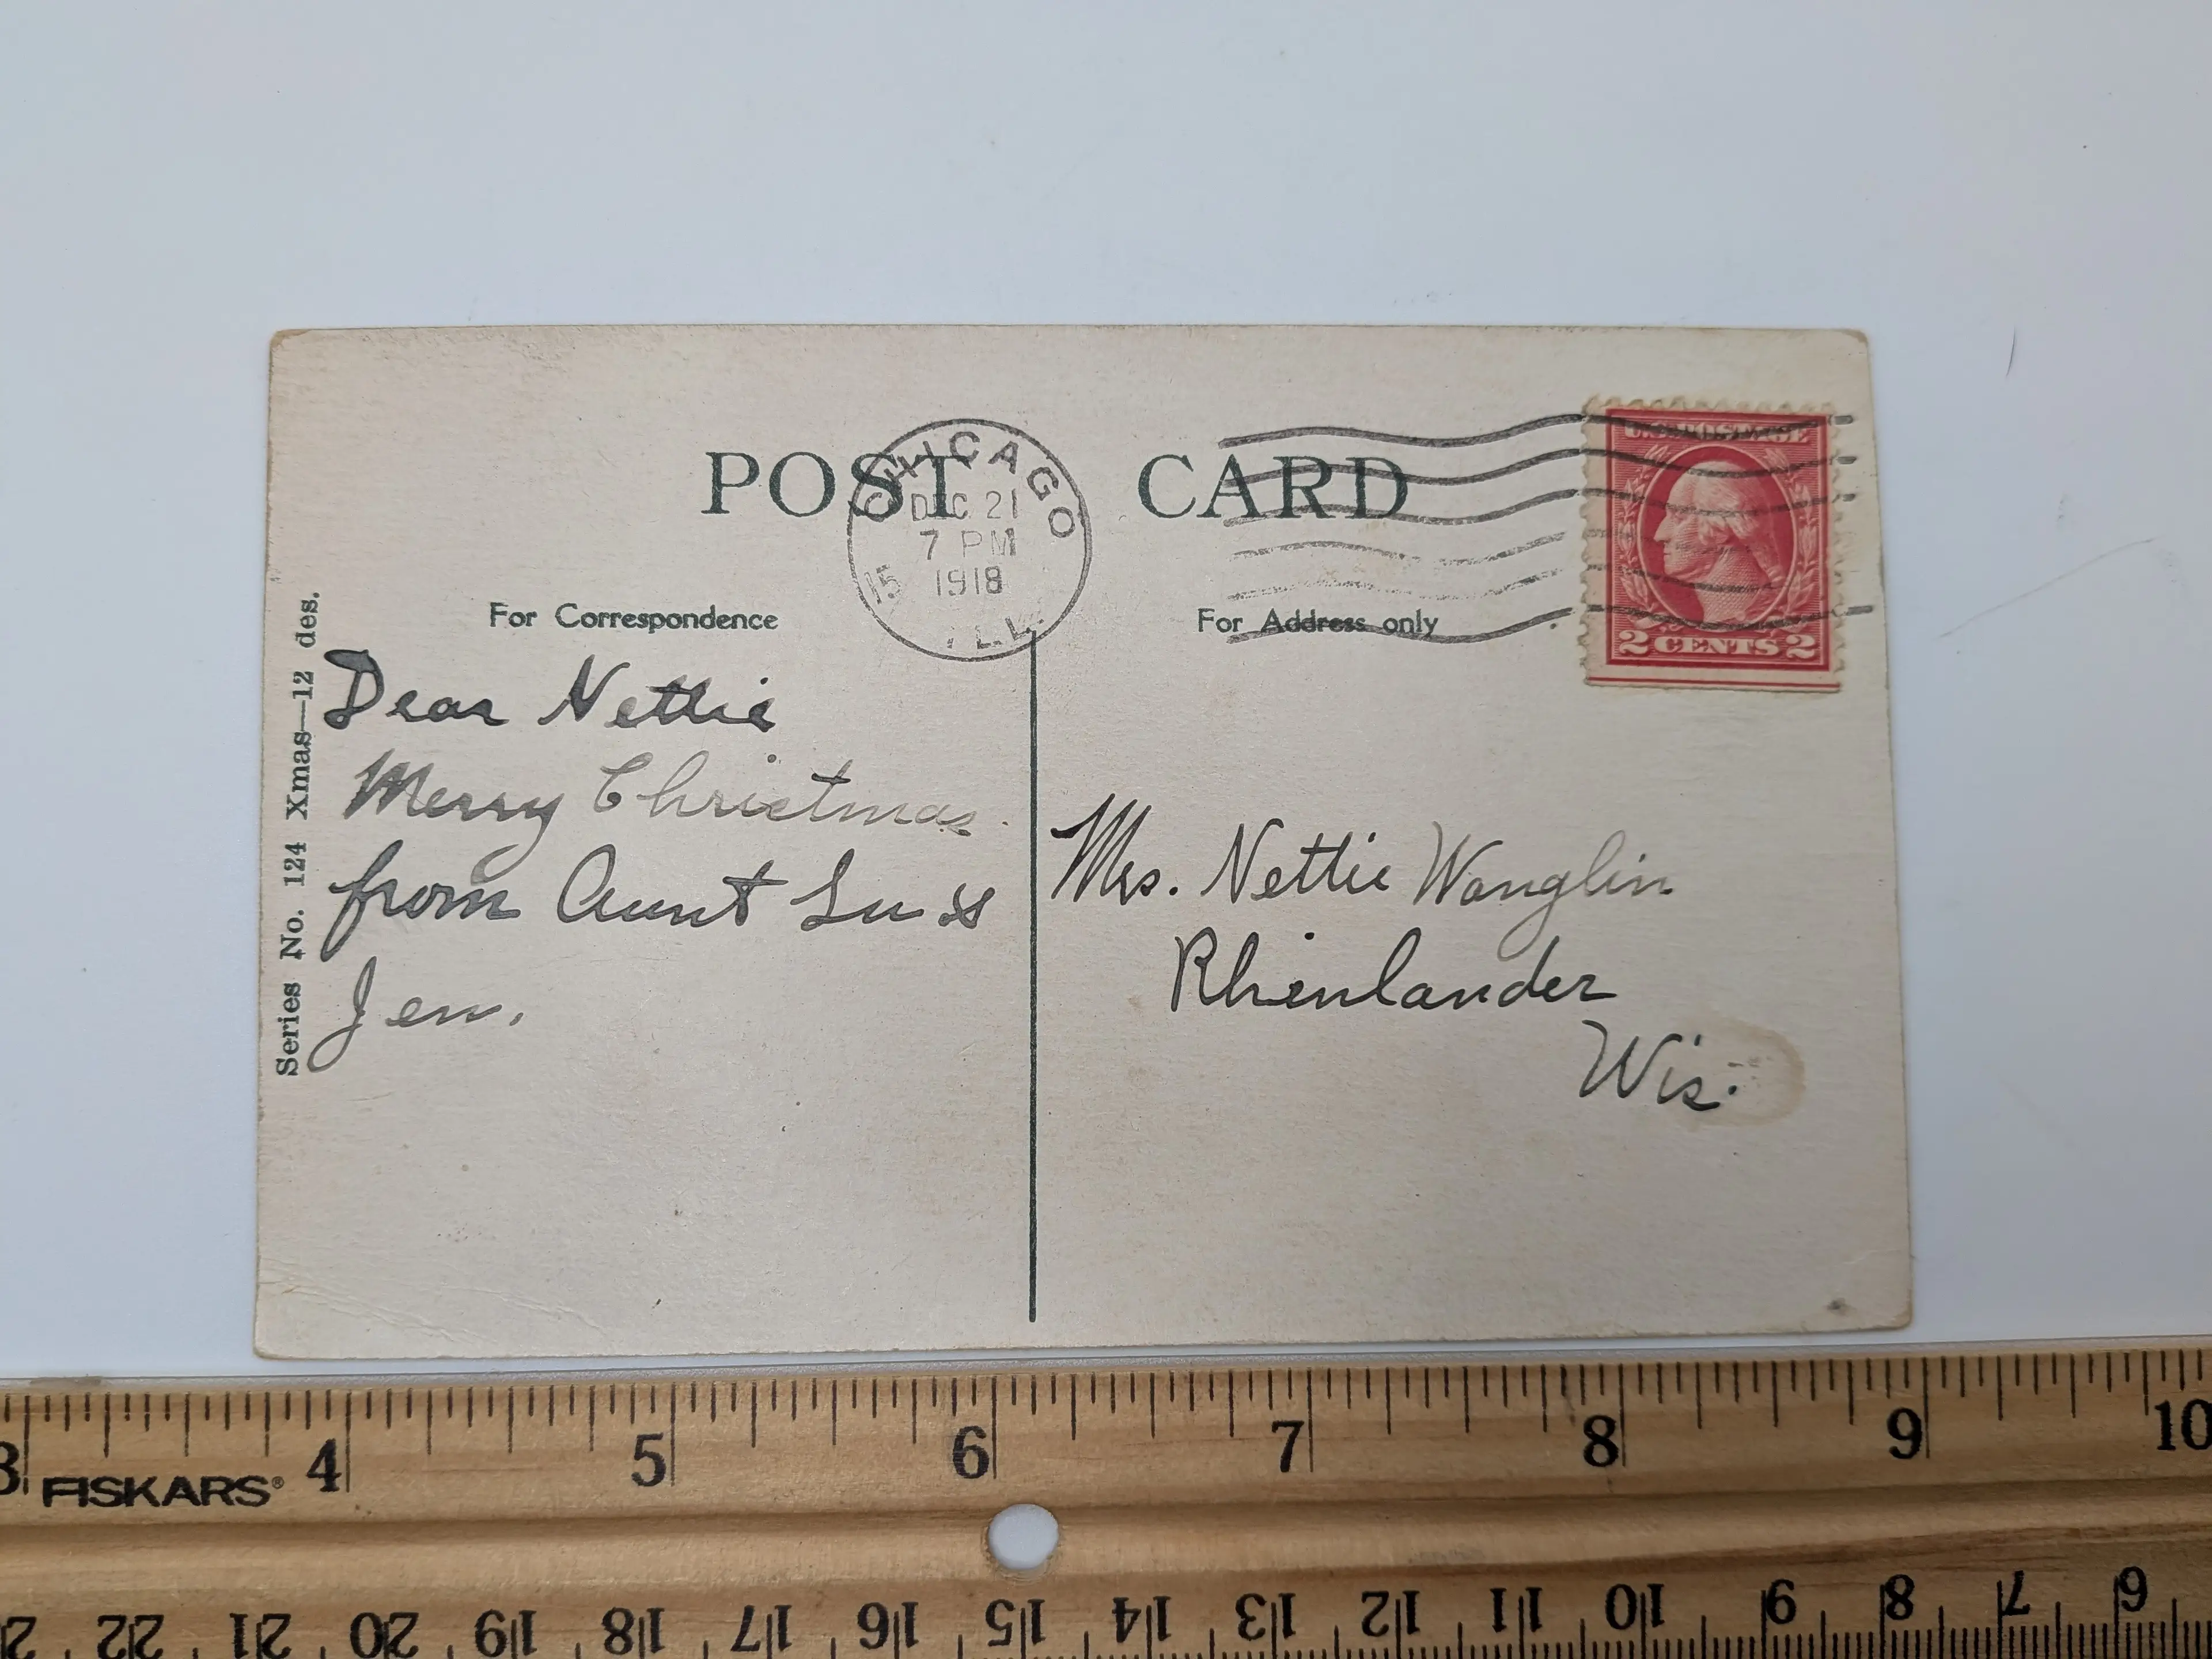 POST CARD
CHICAGO
DEC 21
7 PM
1918
15
ILL.
U.S. POSTAGE
2 CENTS 2
For Correspondence
For Address only
Series No. 124 Xmas—12 des.
Dear Nettie
Merry Christmas.
from Aunt Lu &
Jen.
Mrs. Nettie Wanglin
Rhinlander
Wis.
3 4 5 6 7 8 9 10
FISKARS®
22 21 20 19 18 17 16 15 14 13 12 11 10 9 8 7 6